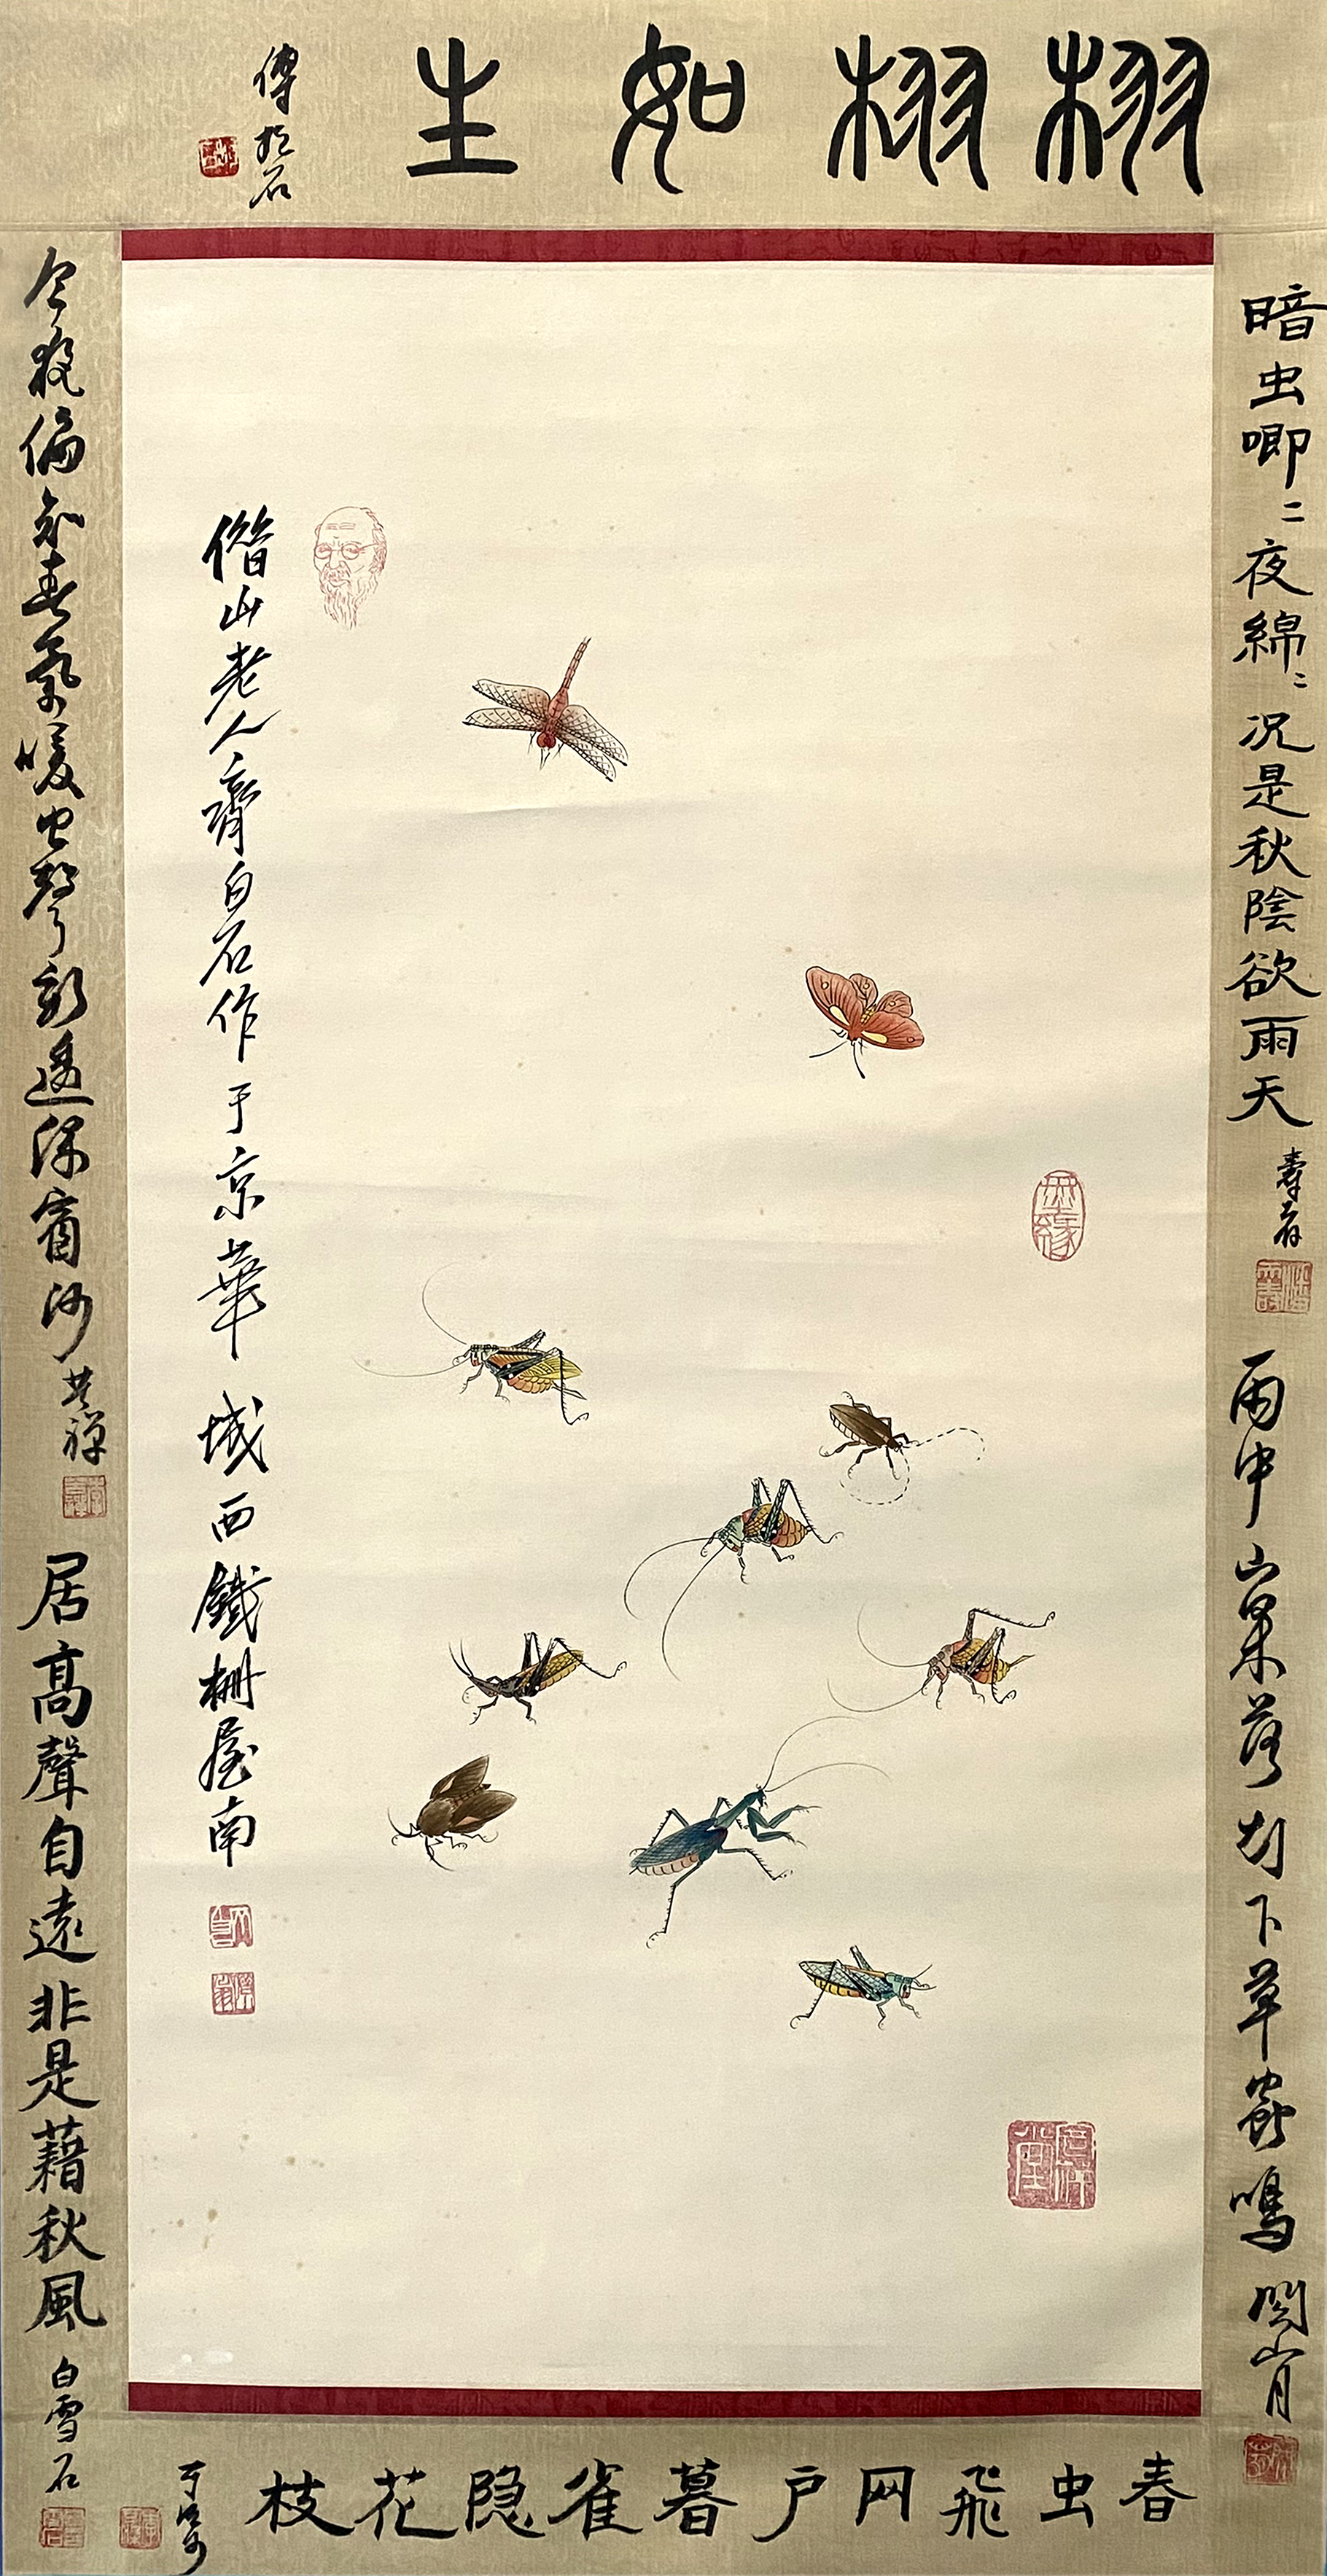 栩栩如生
傅抱石
暗虫唧二夜綿二况是秋陰欲雨天
壽石
雨中山果落灯下草蟲鳴
関山月
借山老人齊白石作于京華城西鐵栅屋南
今夜偏知春氣暖虫聲新透綠窗沙
苦禅
居高聲自遠非是藉秋風
白雪石
春虫飛网户暮雀隐花枝
可染